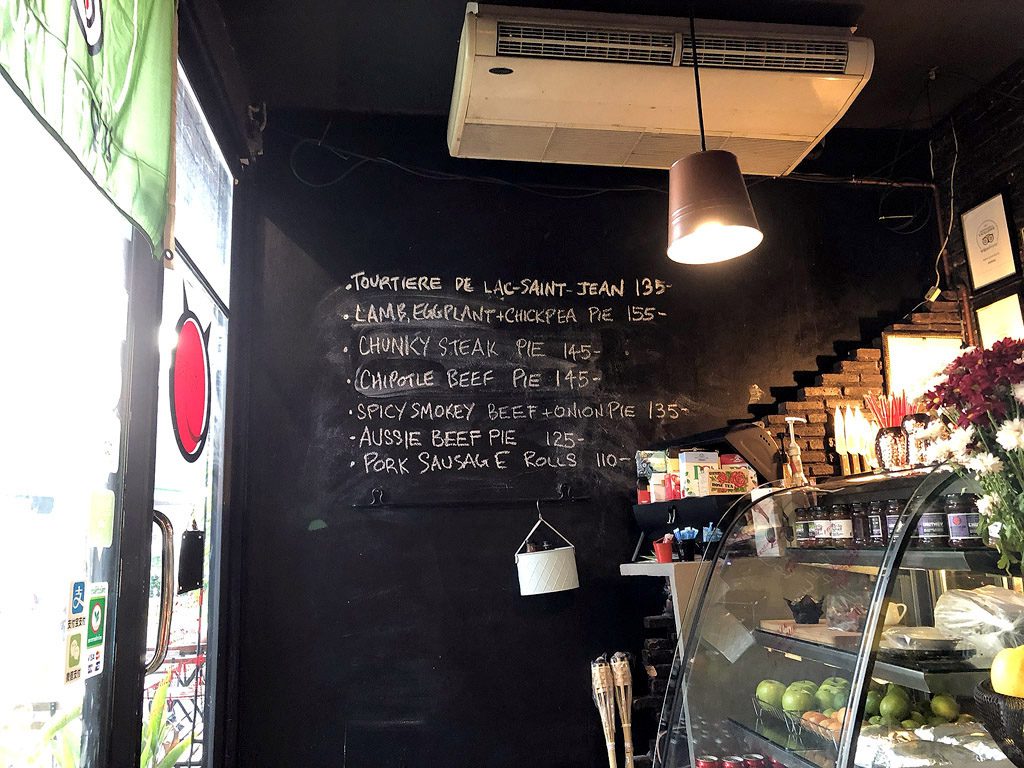 •TOURTIERE DE LAC-SAINT-JEAN 135-
•LAMB, EGGPLANT+CHICKPEA PIE 155-
•CHUNKY STEAK PIE 145-
•CHIPOTLE BEEF PIE 145-
•SPICY SMOKEY BEEF+ONION PIE 135-
•AUSSIE BEEF PIE 125-
•PORK SAUSAGE ROLLS 110-
ROSE TEA
CHUTNEY
支付宝支付
VISA